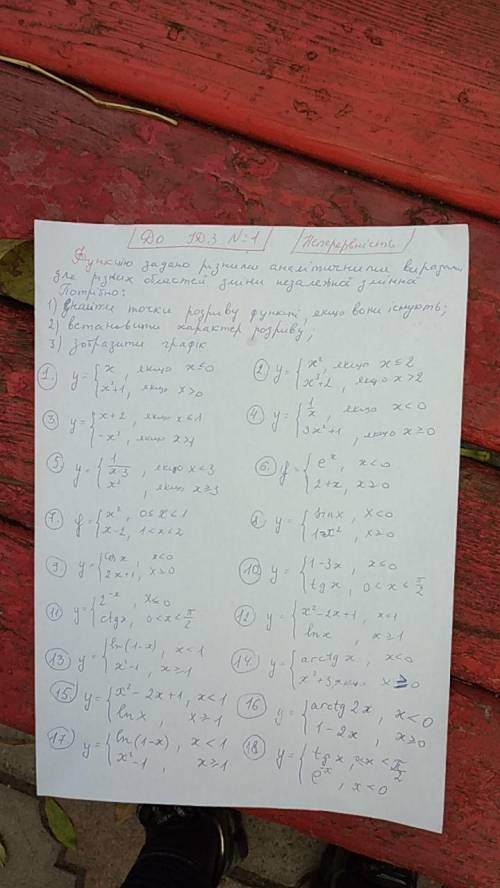 До ІДЗ №1 Неперервність
Функцію задано різними аналітичними виразами
для різних областей зміни незалежної змінної
Потрібно:
1) знайти точки розриву функції, якщо вони існують;
2) встановити характер розриву;
3) зобразити графік
1. y = { x, якщо x ≤ 0
x²+1, якщо x > 0
2. y = { x², якщо x ≤ 2
x³+2, якщо x > 2
3 y = { x+2, якщо x ≤ 1
-x², якщо x > 1
4. y = { 1/x, якщо x < 0
3x²+1, якщо x ≥ 0
5. y = { 1/(x-3), якщо x < 3
x², якщо x ≥ 3
6. y = { eˣ, x < 0
2+x, x ≥ 0
7. y = { x², 0 ≤ x ≤ 1
x-2, 1 < x ≤ 2
8. y = { sin x, x < 0
1-x², x ≥ 0
9 y = { cos x, x < 0
2x+1, x ≥ 0
10. y = { 1-3x, x ≤ 0
tg x, 0 < x ≤ π/2
11 y = { 2⁻ˣ, x ≤ 0
ctg x, 0 < x ≤ π/2
12 y = { x²-2x+1, x < 1
ln x, x ≥ 1
13. y = { ln(1-x), x < 1
x²-1, x ≥ 1
14. y = { arctg x, x < 0
x²+3, x ≥ 0
15. y = { x²-2x+1, x < 1
ln x, x ≥ 1
16 y = { arctg 2x, x < 0
1-2x, x ≥ 0
17 y = { ln(1-x), x < 1
x²-1, x ≥ 1
18. y = { tg x, 0 ≤ x < π/2
e⁻ˣ, x < 0